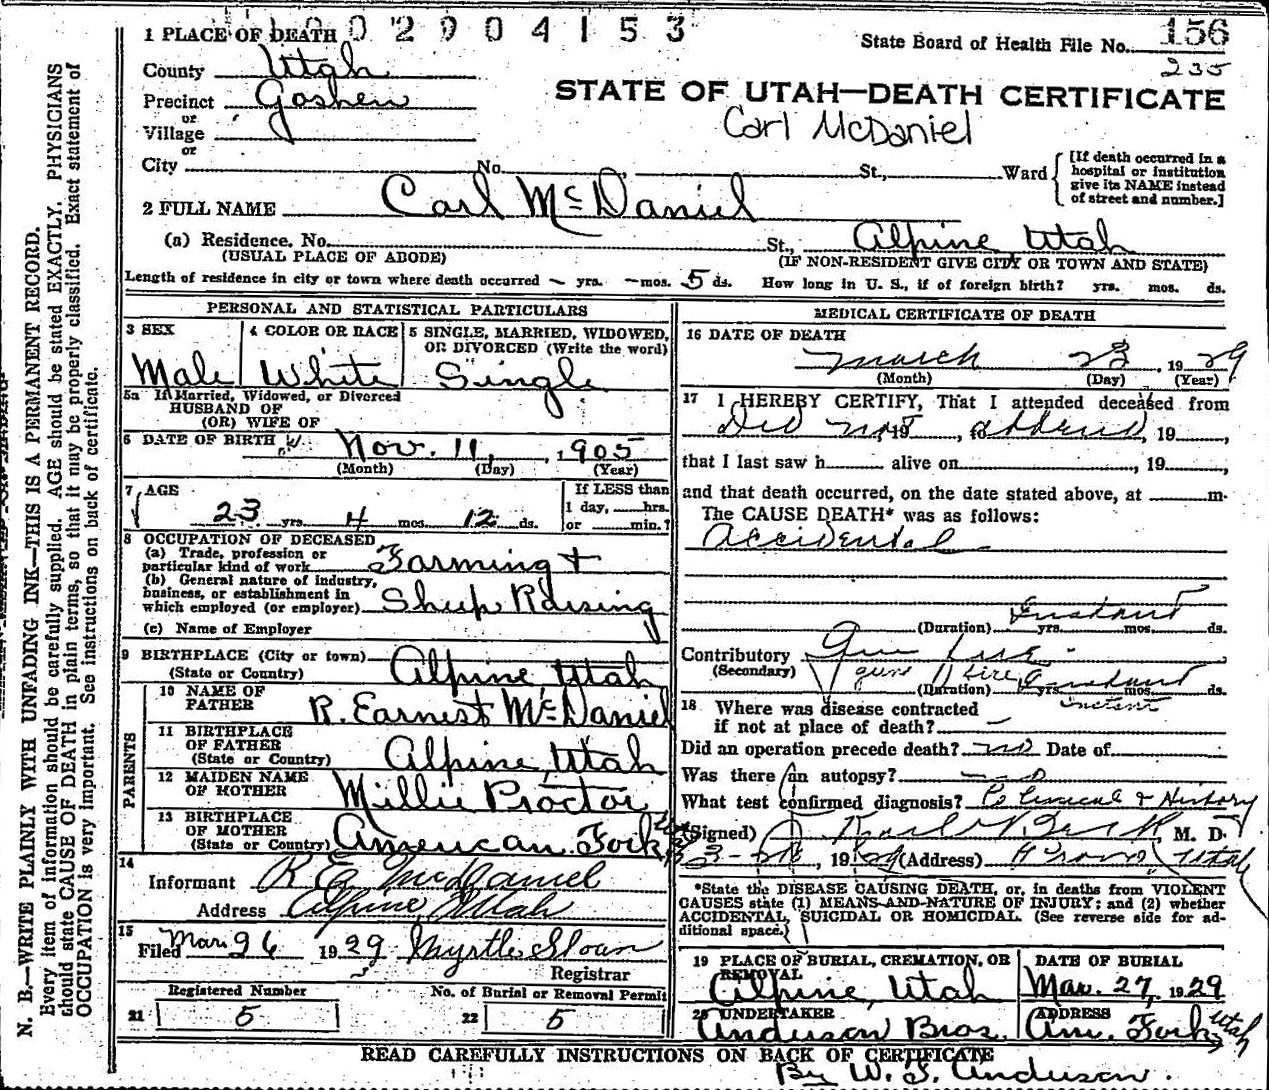 1 PLACE OF DEATH 0 0 2 9 0 4 1 5 3
State Board of Health File No. 156
235
County Utah
Precinct Goshen
or
Village
or
City No. St., Ward
STATE OF UTAH—DEATH CERTIFICATE
Carl McDaniel
[If death occurred in a
hospital or institution
give its NAME instead
of street and number.]
2 FULL NAME Carl McDaniel
(a) Residence. No. St., Alpine, Utah
(USUAL PLACE OF ABODE) (IF NON-RESIDENT GIVE CITY OR TOWN AND STATE)
Length of residence in city or town where death occurred – yrs. – mos. 5 ds. How long in U. S., if of foreign birth? yrs. mos. ds.
PERSONAL AND STATISTICAL PARTICULARS
3 SEX
Male
4 COLOR OR RACE
White
5 SINGLE, MARRIED, WIDOWED,
OR DIVORCED (Write the word)
Single
5a If Married, Widowed, or Divorced
HUSBAND OF
(OR) WIFE OF
6 DATE OF BIRTH Nov. 11, 1905
(Month) (Day) (Year)
7 AGE
23 yrs. 4 mos. 12 ds.
If LESS than
1 day, hrs.
or min.?
8 OCCUPATION OF DECEASED
(a) Trade, profession or
particular kind of work Farming +
(b) General nature of industry,
business, or establishment in
which employed (or employer) Sheep Raising
(c) Name of Employer
9 BIRTHPLACE (City or town)
(State or Country) Alpine Utah
PARENTS
10 NAME OF
FATHER R. Earnest McDaniel
11 BIRTHPLACE
OF FATHER
(State or Country) Alpine, Utah
12 MAIDEN NAME
OF MOTHER Millie Proctor
13 BIRTHPLACE
OF MOTHER
(State or Country) American Fork
14
Informant R E McDaniel
Address Alpine, Utah
15
Filed Mar 26 1929 Myrtle Sloan
Registrar
Registered Number
21 5
No. of Burial or Removal Permit
22 5
MEDICAL CERTIFICATE OF DEATH
16 DATE OF DEATH
March 23, 1929
(Month) (Day) (Year)
17 I HEREBY CERTIFY, That I attended deceased from
Did not, 19, to attend, 19,
that I last saw h alive on, 19,
and that death occurred, on the date stated above, at m.
The CAUSE DEATH* was as follows:
Accidental
Instant
(Duration) yrs. mos. ds.
Contributory Gun fire
(Secondary) gun fire
(Duration) Instant yrs. mos. ds.
instant
18 Where was disease contracted
if not at place of death? —
Did an operation precede death? no Date of
Was there an autopsy? no
What test confirmed diagnosis? & History
(Signed) M. D.
3- , 1929 (Address) Provo, Utah
*State the DISEASE CAUSING DEATH, or, in deaths from VIOLENT
CAUSES state (1) MEANS AND NATURE OF INJURY; and (2) whether
ACCIDENTAL, SUICIDAL OR HOMICIDAL. (See reverse side for ad-
ditional space.)
19 PLACE OF BURIAL, CREMATION, OR
REMOVAL
Alpine, Utah
DATE OF BURIAL
Mar. 27, 1929
20 UNDERTAKER
Anderson Bros.
ADDRESS
Am. Fork, Utah
READ CAREFULLY INSTRUCTIONS ON BACK OF CERTIFICATE
By W. S. Anderson.
N. B.—WRITE PLAINLY WITH UNFADING INK—THIS IS A PERMANENT RECORD.
Every item of information should be carefully supplied. AGE should be stated EXACTLY. PHYSICIANS
should state CAUSE OF DEATH in plain terms, so that it may be properly classified. Exact statement of
OCCUPATION is very important. See instructions on back of certificate.